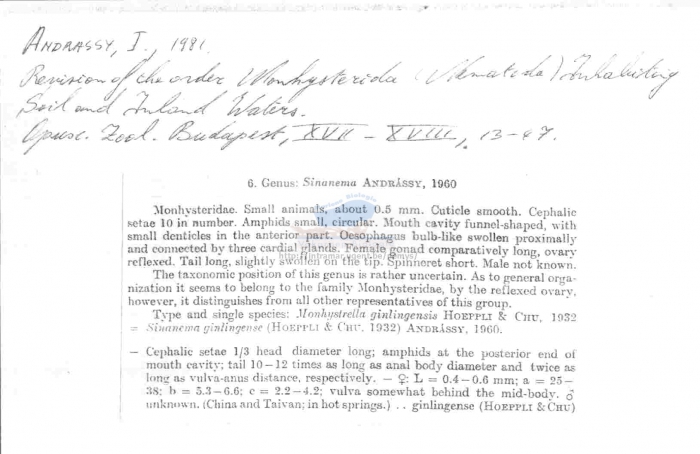 ANDRÁSSY, I., 1981.
Revision of the order Monhysterida (Nematoda) Inhabiting
Soil and Inland Waters.
Opusc. Zool. Budapest, XVII – XVIII, 13-47.
6. Genus: Sinanema ANDRÁSSY, 1960
Monhysteridae. Small animals, about 0.5 mm. Cuticle smooth. Cephalic
setae 10 in number. Amphids small, circular. Mouth cavity funnel-shaped, with
small denticles in the anterior part. Oesophagus bulb-like swollen proximally
and connected by three cardial glands. Female gonad comparatively long, ovary
reflexed. Tail long, slightly swollen on the tip. Spinneret short. Male not known.
The taxonomic position of this genus is rather uncertain. As to general orga-
nization it seems to belong to the family Monhysteridae, by the reflexed ovary,
however, it distinguishes from all other representatives of this group.
Type and single species: Monhystrella ginlingensis HOEPPLI & CHU, 1932
= Sinanema ginlingense (HOEPPLI & CHU, 1932) ANDRÁSSY, 1960.
– Cephalic setae 1/3 head diameter long; amphids at the posterior end of
mouth cavity; tail 10–12 times as long as anal body diameter and twice as
long as vulva-anus distance, respectively. – ♀: L = 0.4–0.6 mm; a = 25–
38; b = 5.3–6.6; c = 2.2–4.2; vulva somewhat behind the mid-body. ♂
unknown. (China and Taivan; in hot springs.) . . ginlingense (HOEPPLI & CHU)